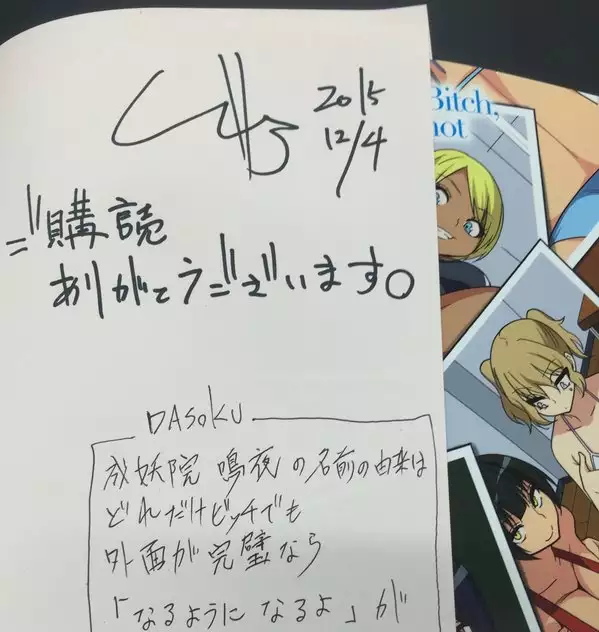 2015
12/4
ご購読
ありがとうございます。
DASOKU
成妖院 鳴夜の名前の由来は
どれだけビッチでも
外面が完璧なら
「なるようになるよ」が
Bitch,
not